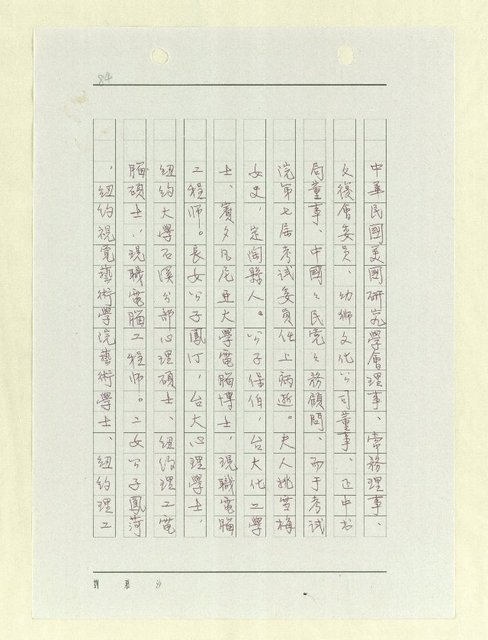 84
中華民國美國研究學會理事、常務理事、
文復會委員、幼獅文化公司董事、正中書
局董事、中國國民黨黨務顧問、而于考試
院第七屆考試委員任上病逝。夫人姚雪梅
女史,定陶縣人。公子保伯,台大化工學
士、賓夕凡尼亞大學電腦博士,現職電腦
工程師。長女公子鳳汀,台大心理學士、
紐約大學石溪分部心理碩士、紐約理工電
腦碩士,現職電腦工程師。二女公子鳳菏
,紐約視覺藝術學院藝術學士、紐約理工